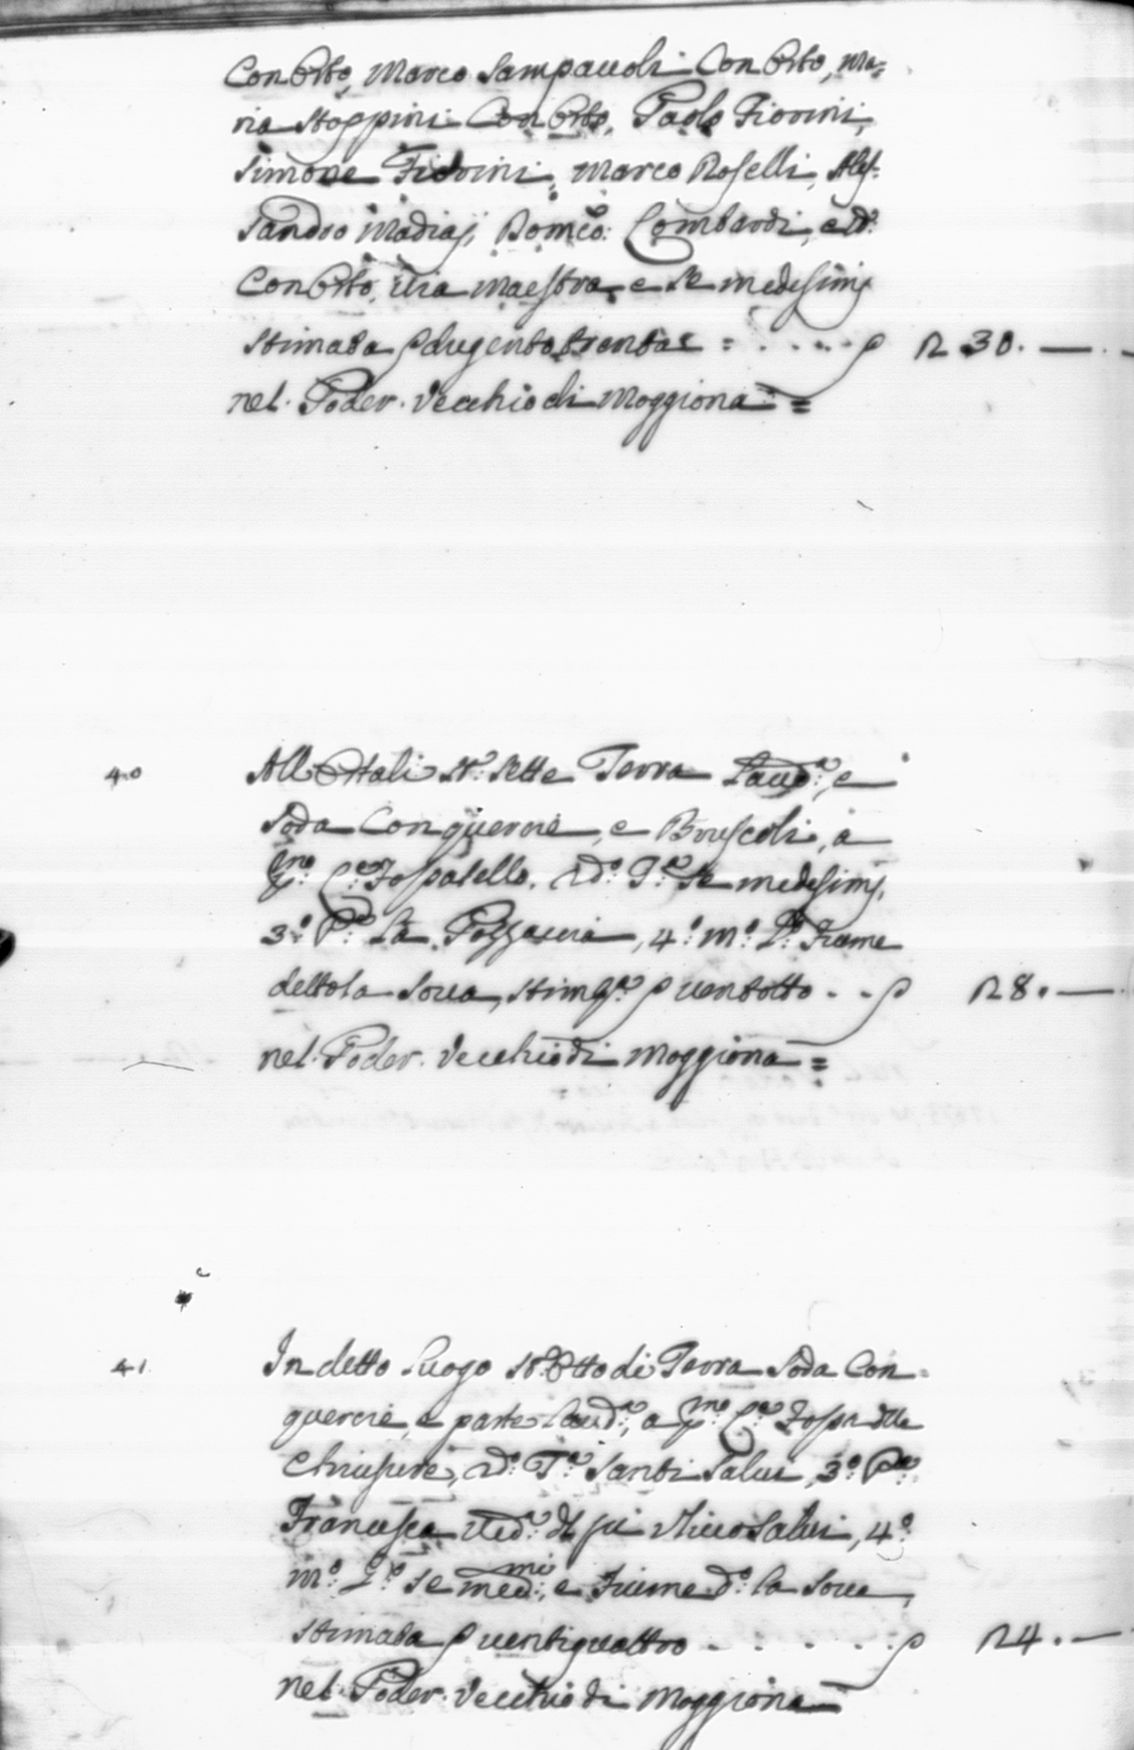 Con Orto, Marco Sampaoli Con Orto, Ma=
ria Stoppini Con Orto, Paolo Fiorini,
Simone Fiorini, Marco Roselli, Ales=
sandro Madiaj, Domco: Lombardi, e do:
Con Orto, via Maestra, e Se medesimj
Stimata p dugento trenta = . . . . . p 230. —
nel Poder. Vecchio di Moggiona =
40
All Ontali St: Sette Terra Lavoa:, e
Soda Con querce, e Bruscoli, a
pmo: Fospatello, 2do: Se medesimj,
3o: Pa: La Pozzaccia, 4o: mo: Lo: Fiume
detto la Sova, stimata p ventotto . . p 28. —
nel Poder. Vecchio di Moggiona =
41
In detto Luogo St: Otto di Terra Soda Con
querce, e parte Lavda:, a pmo: Fosso delle
Chiusure, 2do: Santi Salvi, 3o: Pa:
Francesca Veda: del fù Salvi, 4o:
mo: Lo: Se medmi:, e Fiume do: la Sova,
stimata p ventiquattro . . . . . p 24. —
nel Poder. Vecchio di Moggiona